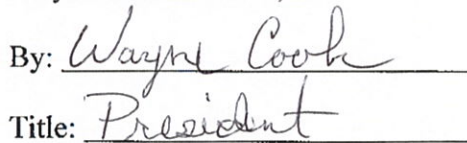 By: Wayne Cook
Title: President